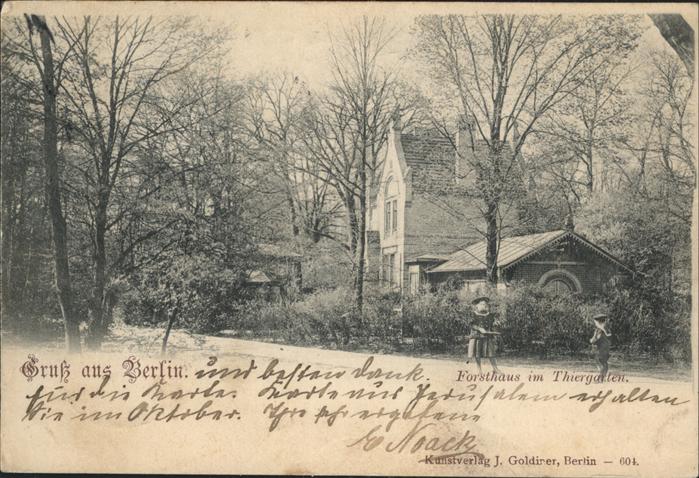 Gruß aus Berlin. und besten Dank.
Forsthaus im Thiergarten.
für die Karte. Karte aus Jerusalem erhalten
Sie im Oktober. Ihre ergebene
E Noack
Kunstverlag J. Goldiner, Berlin — 604.